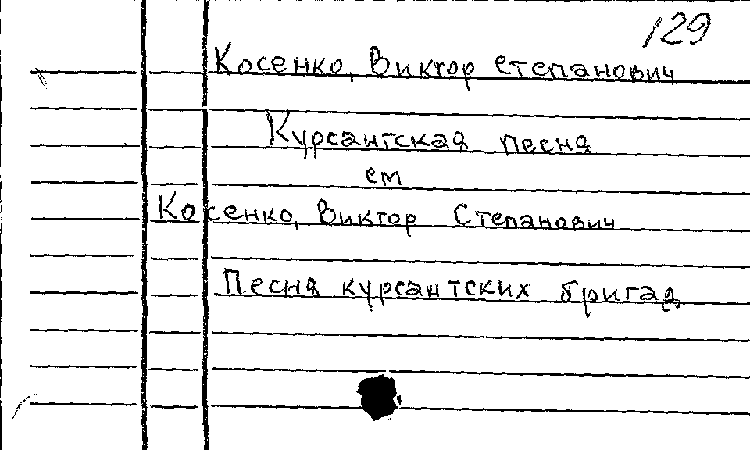 129
Косенко, Виктор Степанович
Курсантская песня
см
Косенко, Виктор Степанович
Песня курсантских бригад